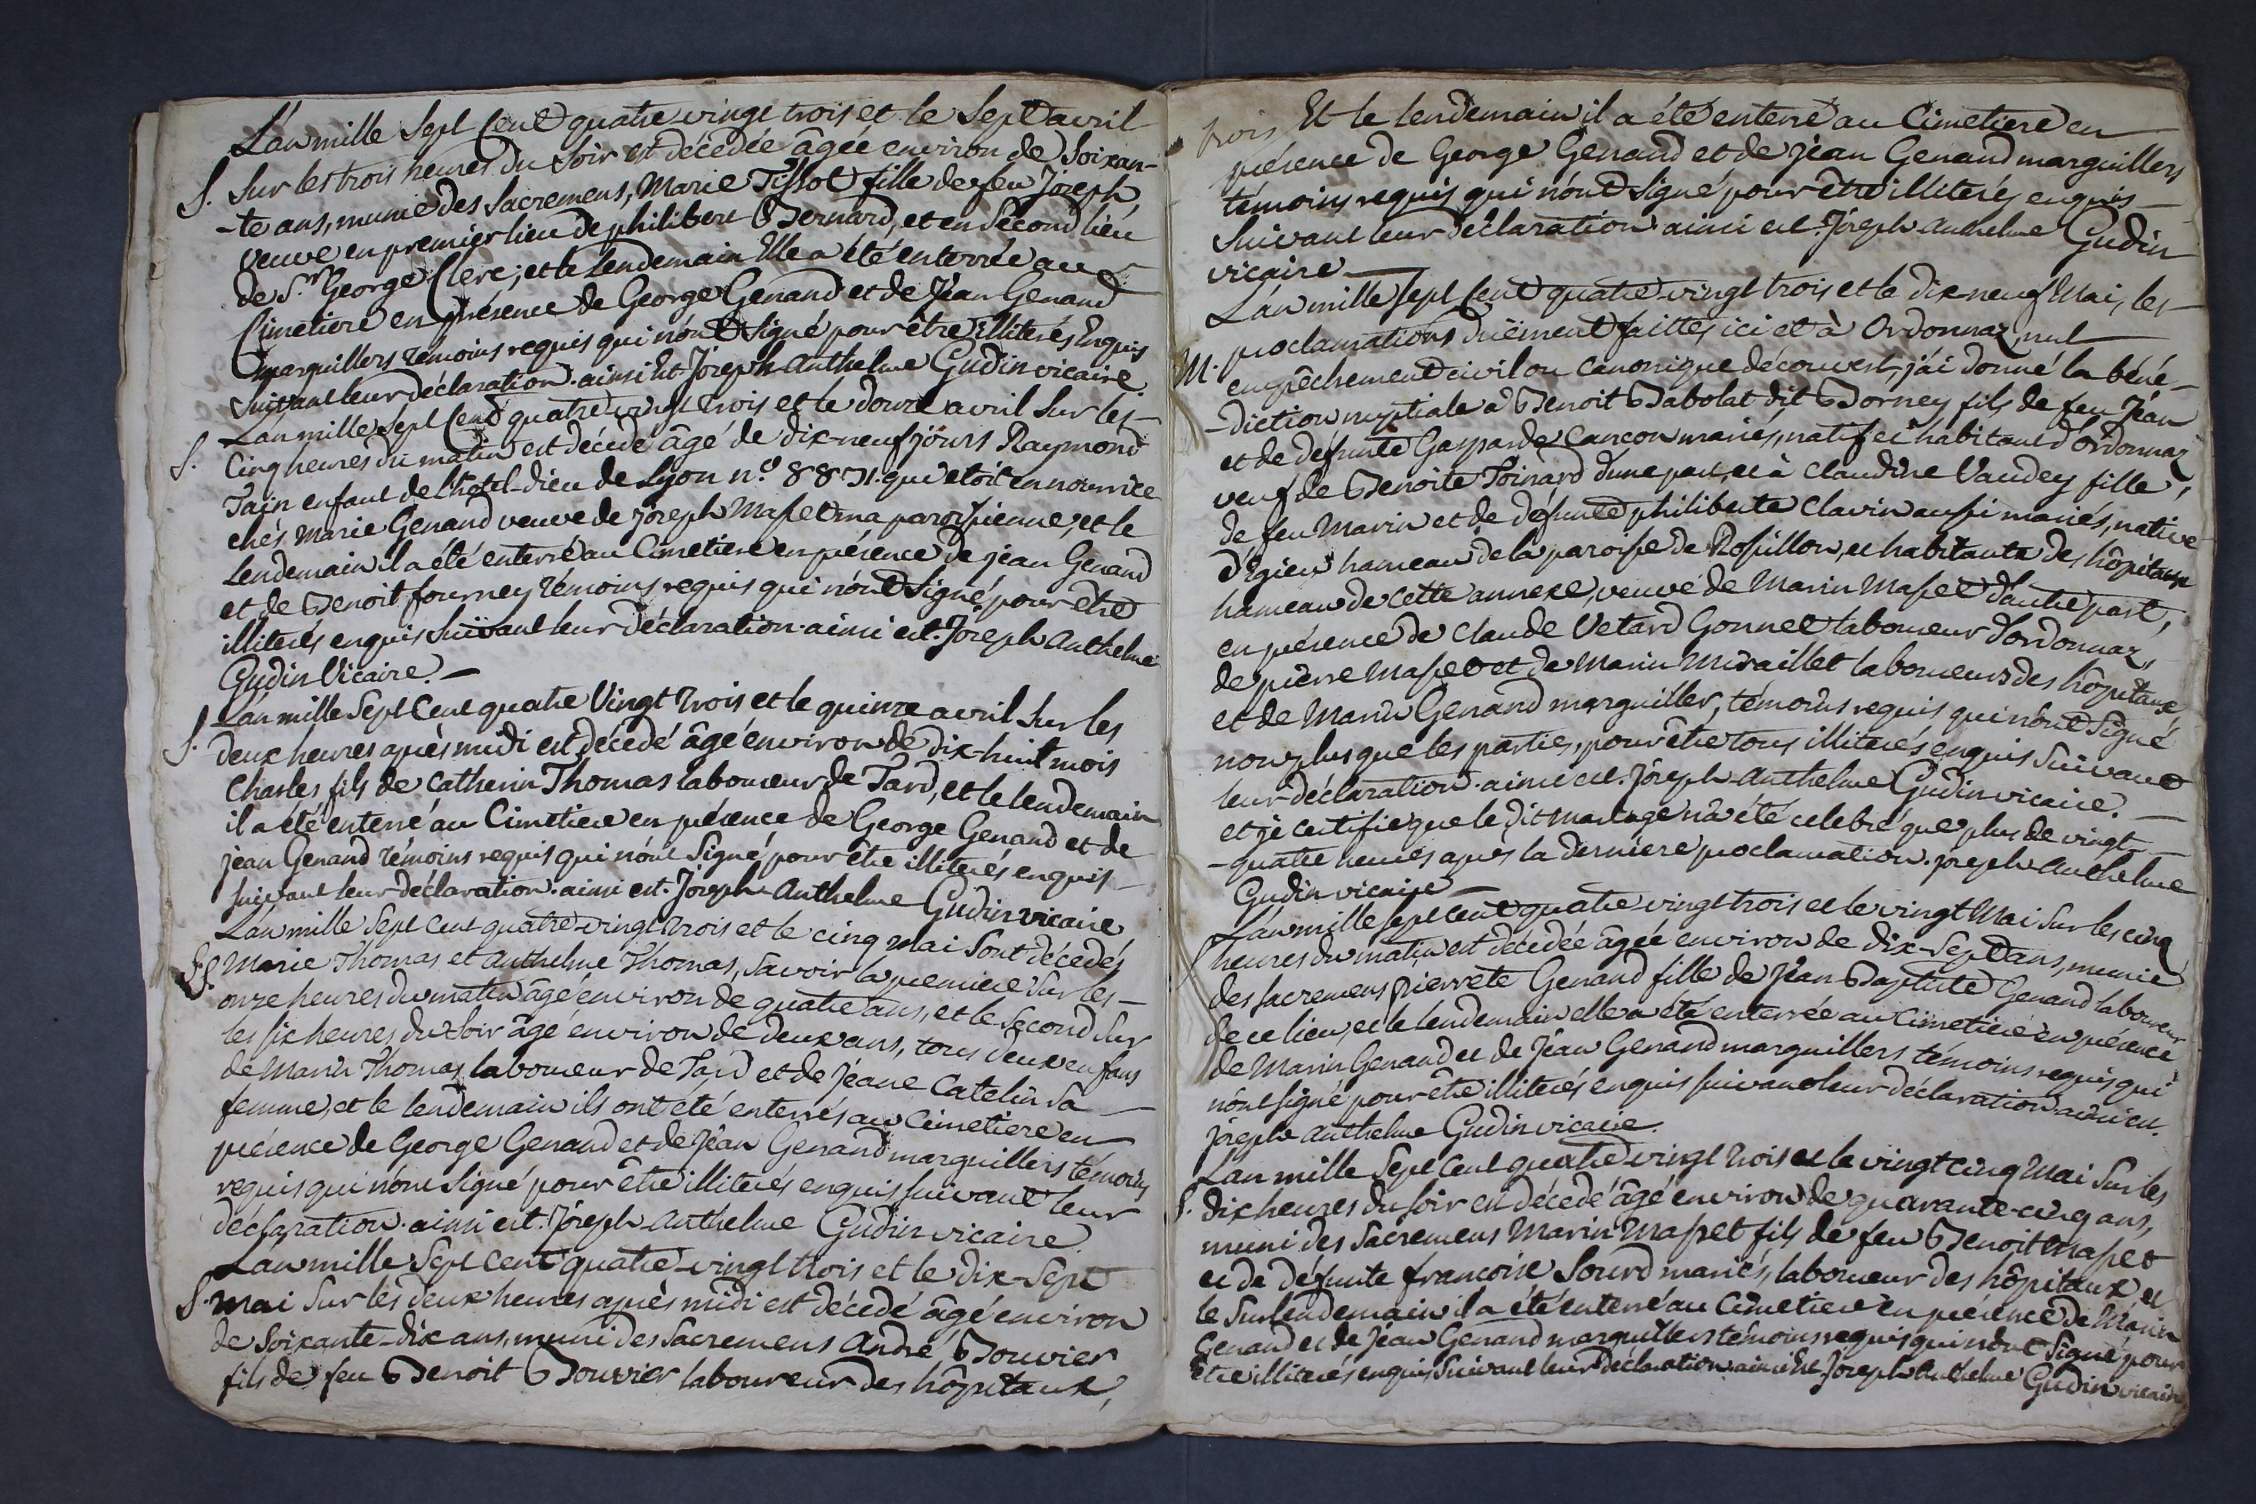 L'an mille Sept Cent quatre vingt trois et le Sept avril
S. Sur les trois heures du Soir est décedée âgée environ de Soixan-
-te ans, munie des Sacremens, Marie Tissot fille de feu Joseph,
veuve en premier lieu de philibert Bernard, et en Second lieu
de S.r George Clerc; et le Lendemain Elle a été enterrée au
Cimetiere en présence de George Genand et de Jéan Genand
marguillers témoins requis qui n'ont Signé pour être Illiterés Enquis
Suivant leur déclaration. ainsi Est Joseph Anthelme Gudin vicaire
L'an mille Sept Cent quatre vingt trois et le douze avril Sur les
S. Cinq heures du matin est décedé âgé de dix-neuf jours Raymond
Tain enfant de L'hotel-dieu de Lyon n.o 8871. qui etoit en nourrice
chés Marie Genand veuve de joseph Masset ma paroissienne, et le
Lendemain il a été enterré au Cimetiere en présence de jean Genand
et de Benoit fourney témoins requis qui n'ont Signé pour être
illiterés enquis Suivant leur déclaration. ainsi est. Joseph Anthelme
Gudin Vicaire.
L'an mille Sept Cent quatre Vingt trois et le quinze avril Sur les
S. deux heures après midi est décedé âgé environ de dix-huit mois
Charles fils de Catherin Thomas laboureur de Tard, et le lendemain
il a été enterré au Cimetiere en présence de George Genand et de
jean Genand témoins requis qui n'ont Signé pour être illiterés enquis
suivant leur déclaration. ainsi est. Joseph Anthelme Gudin vicaire
L'an mille Sept cent quatre-vingt trois et le cinq mai Sont décedés
SS. Marie Thomas et Anthelme Thomas, Savoir la premiere Sur les
onze heures du matin âgé environ de quatre ans, et le Second Sur
les six heures du Soir âgé environ de deux ans, tous deux enfans
de Marin Thomas laboureur de Tard et de Jéane Catelin Sa
femme, et le lendemain ils ont été enterrés au Cimetiere en
présence de George Genand et de Jéan Genand marguillers témoins
requis qui n'ont Signé pour être illiterés enquis suivant leur
déclaration. ainsi est. Joseph Anthelme Gudin vicaire.
L'an mille Sept cent quatre-vingt trois et le dix-Sept
S. Mai Sur les deux heures après midi est décedé âgé environ
de Soixante-dix ans, muni des Sacremens André Bouvier
fils de feu Benoit Bouvier laboureur des hôpitaux,
trois Et le lendemain il a été enterré au Cimetiere en
présence de George Genand et de jean Genand marguillers
témoins requis qui n'ont Signé pour être illiterés enquis
Suivant leur déclaration ainsi est. Joseph Anthelme Gudin
vicaire
L'an mille Sept Cent quatre-vingt trois et le dix-neuf Mai, les
proclamations duëment faittes ici et à Ordonnaz, nul
M. empêchement civil ou canonique découvert, j'ai donné la béné-
-diction nuptiale à Benoit Babolat dit Borney fils de feu Jéan
et de défunte Gasparde Cancon mariés, natif et habitant d'ordonnaz
veuf de Benoite Poinard d'une part, et à Claudine Vaudey fille,
de feu Marin et de défunte philiberte Clavin aussi mariés, native
d'Egieu hameau de la paroisse de Rossillon, et habitante des hôpitaux
hameau de cette annexe, veuve de Marin Masset d'autre part,
en présence de Claude Vetard Gonnet laboureur d'ordonnaz,
de pierre Masset et de Marin Miraillet laboureurs des hôpitaux
et de Marin Genand marguiller, témoins requis qui n'ont Signé
non plus que les parties, pour être tous illiterés enquis Suivant
leur déclaration. ainsi est. Joseph Anthelme Gudin vicaire.
et je certifie que le dit mariage n'a été celebré que plus de vingt-
-quatre heures après la derniere proclamation. joseph Anthelme
Gudin vicaire
L'an mille sept cent quatre-vingt trois et le vingt Mai Sur les cinq
S heures du matin est décedée âgée environ de dix-Sept ans, munie
des sacremens pierrete Genand fille de Jéan Baptiste Genand laboureur
de ce lieu, et le lendemain elle a été enterrée au Cimetiere en présence
de Marin Genand et de Jéan Genand marguillers témoins requis qui
n'ont signé pour être illiterés enquis suivant leur déclaration ainsi est.
joseph Anthelme Gudin vicaire.
L'an mille Sept Cent quatre vingt trois et le vingt cinq Mai Sur les
S. dix heures du soir est décedé âgé environ de quarante-cinq ans,
muni des Sacremens Marin Masset fils de feu Benoit Masset
et de défunte françoise Sourd mariés, laboureur des hôpitaux et
le Surlendemain il a été enterré au Cimetiere en présence de Marin
Genand et de Jéan Genand marguillers témoins requis qui n'ont Signé pour
être illiterés enquis Suivant leur déclaration ainsi Est Joseph Anthelme Gudin vicaire